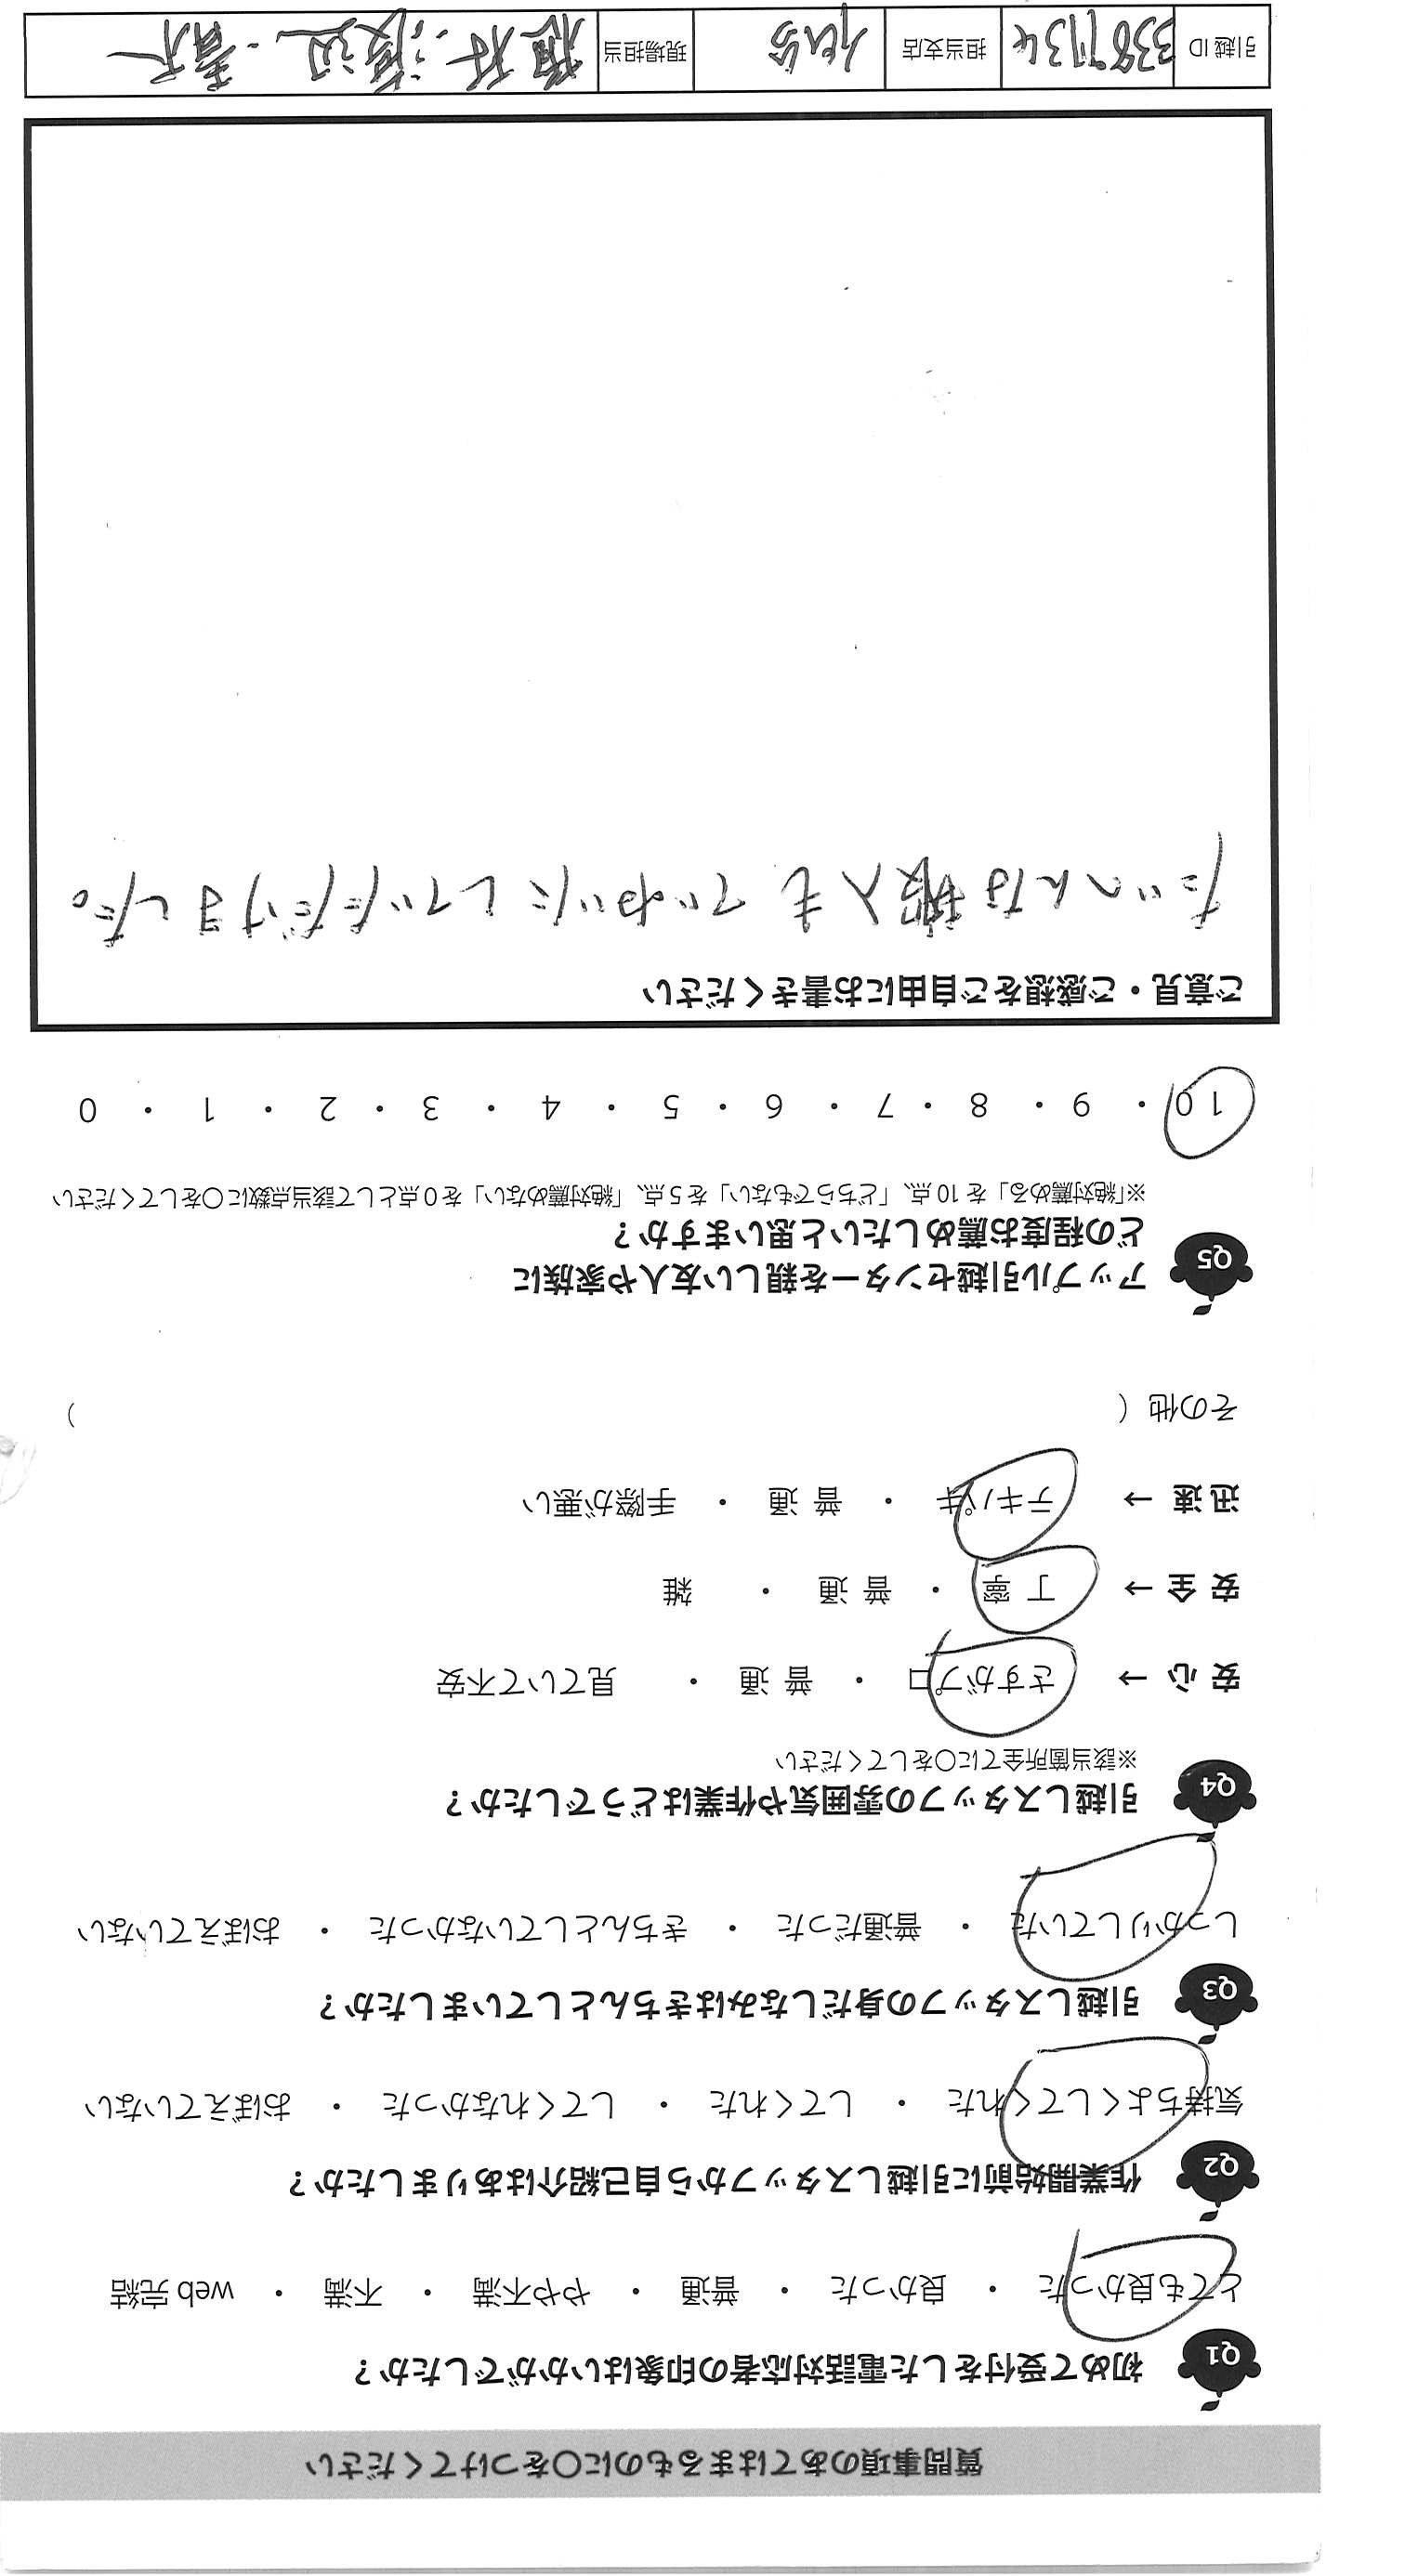 質問事項のあてはまるものに〇をつけてください
Q1 初めて受付をした電話対応者の印象はいかがでしたか？
とても良かった ・ 良かった ・ 普通 ・ やや不満 ・ 不満 ・ web 完結
Q2 作業開始前に引越しスタッフから自己紹介はありましたか？
気持ちよくしてくれた ・ してくれた ・ してくれなかった ・ おぼえていない
Q3 引越しスタッフの身だしなみはきちんとしていましたか？
しっかりしていた ・ 普通だった ・ きちんとしていなかった ・ おぼえていない
Q4 引越しスタッフの雰囲気や作業はどうでしたか？
※該当箇所全てに〇をしてください
安 心 → さすがプロ ・ 普 通 ・ 見ていて不安
安 全 → 丁 寧 ・ 普 通 ・ 雑
迅 速 → テキパキ ・ 普 通 ・ 手際が悪い
その他（ ）
Q5 アップル引越センターを親しい友人や家族に
どの程度お薦めしたいと思いますか？
※「絶対薦める」を 10 点、「どちらでもない」を 5 点、「絶対薦めない」を 0 点として該当点数に〇をしてください
10 ・ 9 ・ 8 ・ 7 ・ 6 ・ 5 ・ 4 ・ 3 ・ 2 ・ 1 ・ 0
ご意見・ご感想をご自由にお書きください
たいへんな搬入もていねいにしていただけました。
引越 ID 3387134 担当支店 現場担当 渡辺・青木